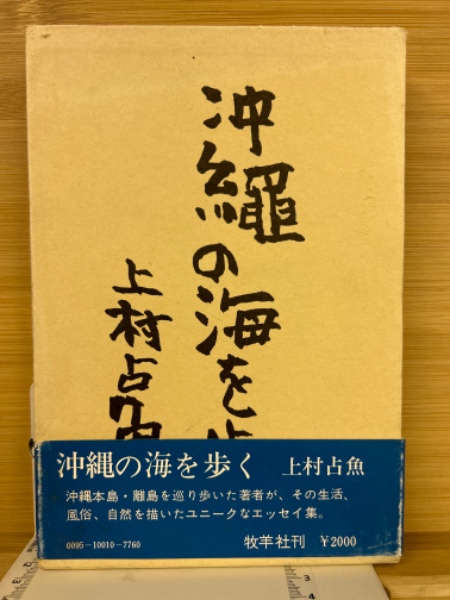 沖繩の海を歩
上村占魚
沖縄の海を歩く 上村占魚
沖縄本島・離島を巡り歩いた著者が、その生活、
風俗、自然を描いたユニークなエッセイ集。
0095-10010-7760
牧羊社刊 ¥2000
2
3
4